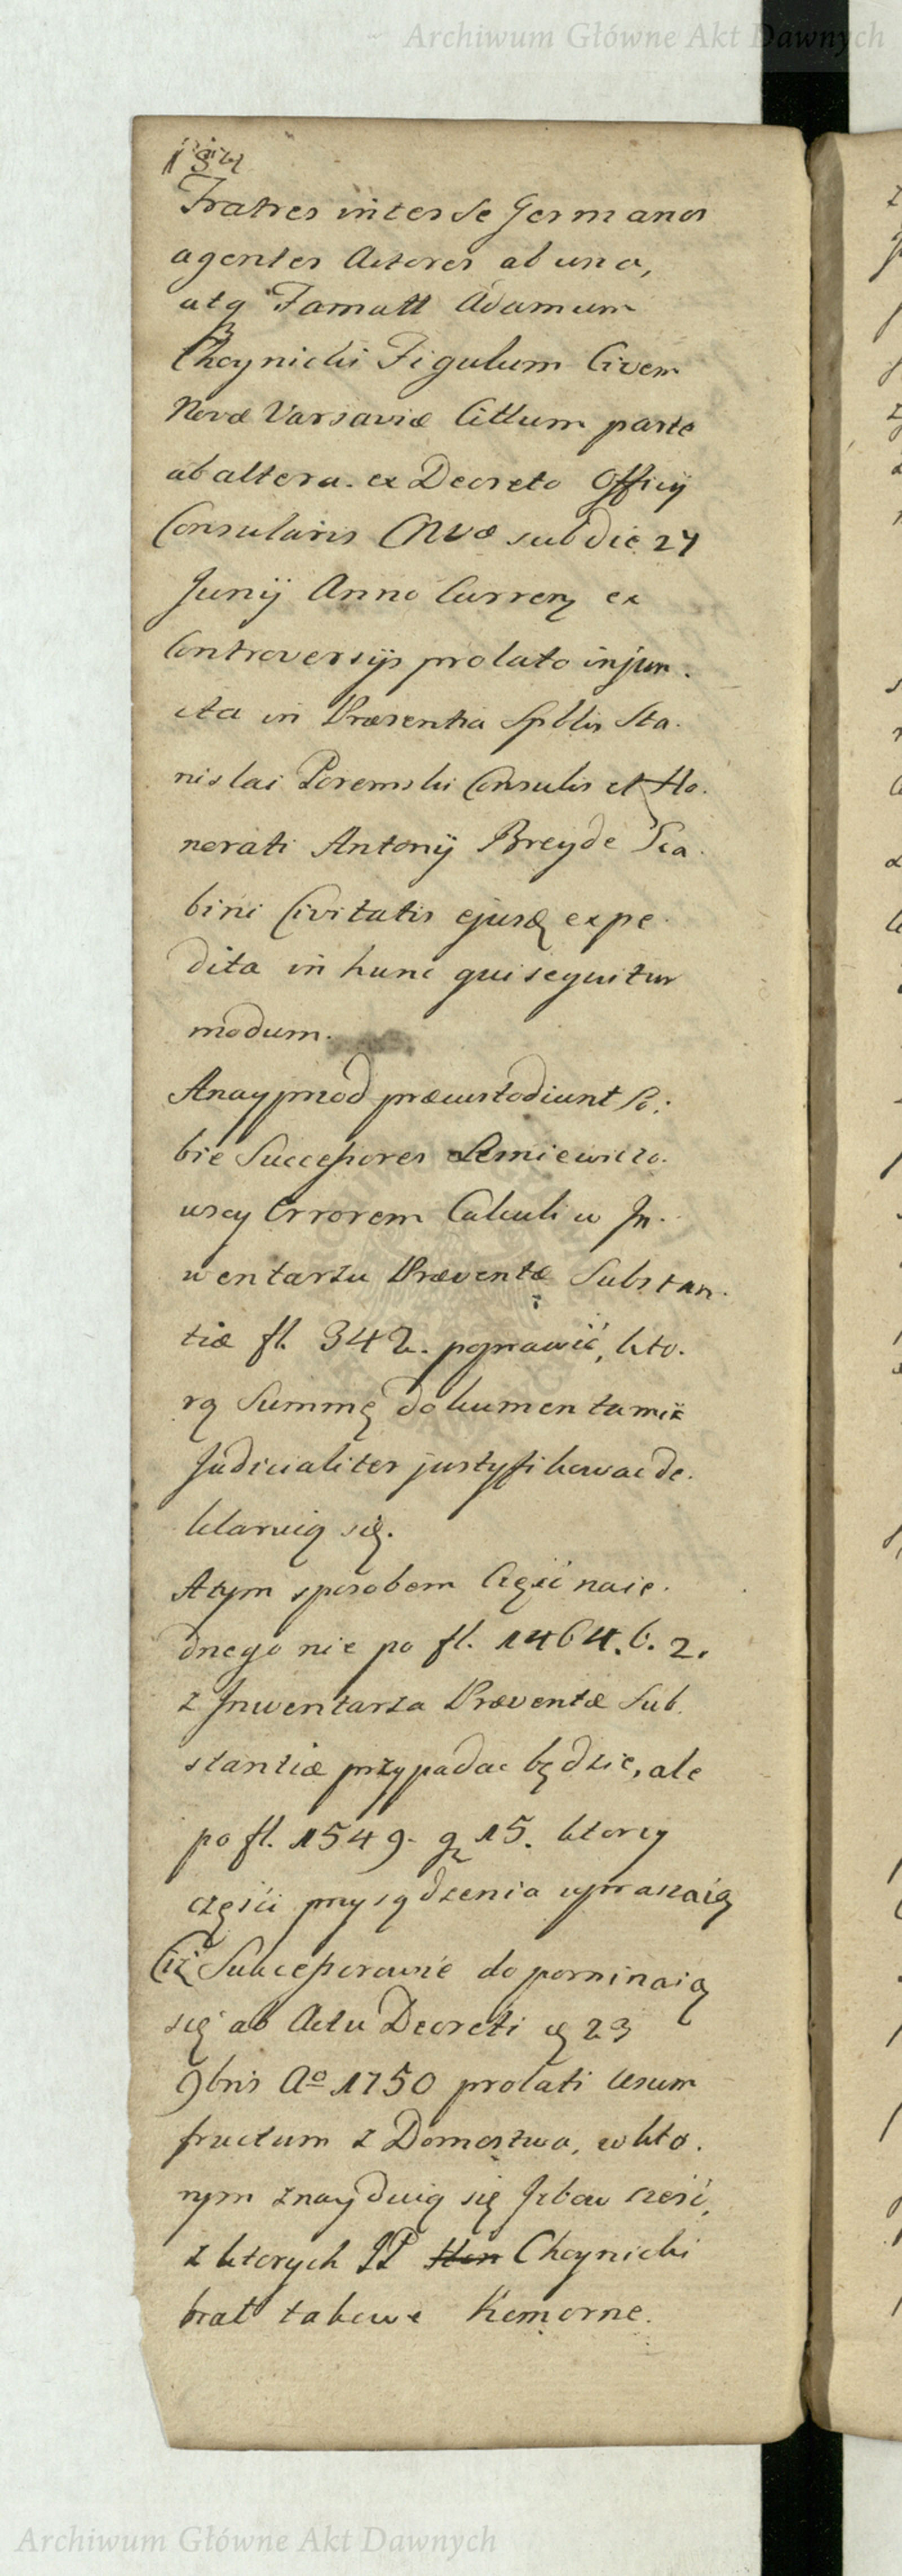 Archiwum Główne Akt Dawnych
Fratres inter Se Germanos
agentes Actores ab una,
atq Famatt Adamum
Choynicki Figulum Civem
Novæ Varsaviæ Cittum parte
ab altera. ex Decreto Officij
Consularis CNVæ sub die 27
Junij Anno Curren ex
Controversijs prolato injun.
cta in Præsentia Spblis Sta.
nislai Poremski Consulis et Ho.
norati Antonij Breyde Sca.
bini Civitatis ejusq expe.
dita in hunc qui sequitur
modum.
Anayprzod præcustodiunt So.
bie Successores Lemiewiczo.
wscy Errorem Calculi w In.
wentarzu Præventæ Substan.
tiæ fl. 342. poprawić, kto.
rą Summę dokumentami
Judicialiter justyfikować de.
klaruią się.
Atym sposobem Część naie.
dnego nie po fl. 1464. 6. 2.
z Inwentarza Præventæ Sub.
stantiæ przypadac będzie, ale
po fl. 1549. g 15. ktorey
części przysądzenia upraszaią
Ciż Sukcessorowie dopominaią
się ab Actu Decreti 23
9bris Ao 1750 prolati Usum
fructum z Domostwa, w kto.
rym znayduią się Izbow sześć,
z ktorych JP Choynicki
brał takowe Komorne.
Archiwum Główne Akt Dawnych